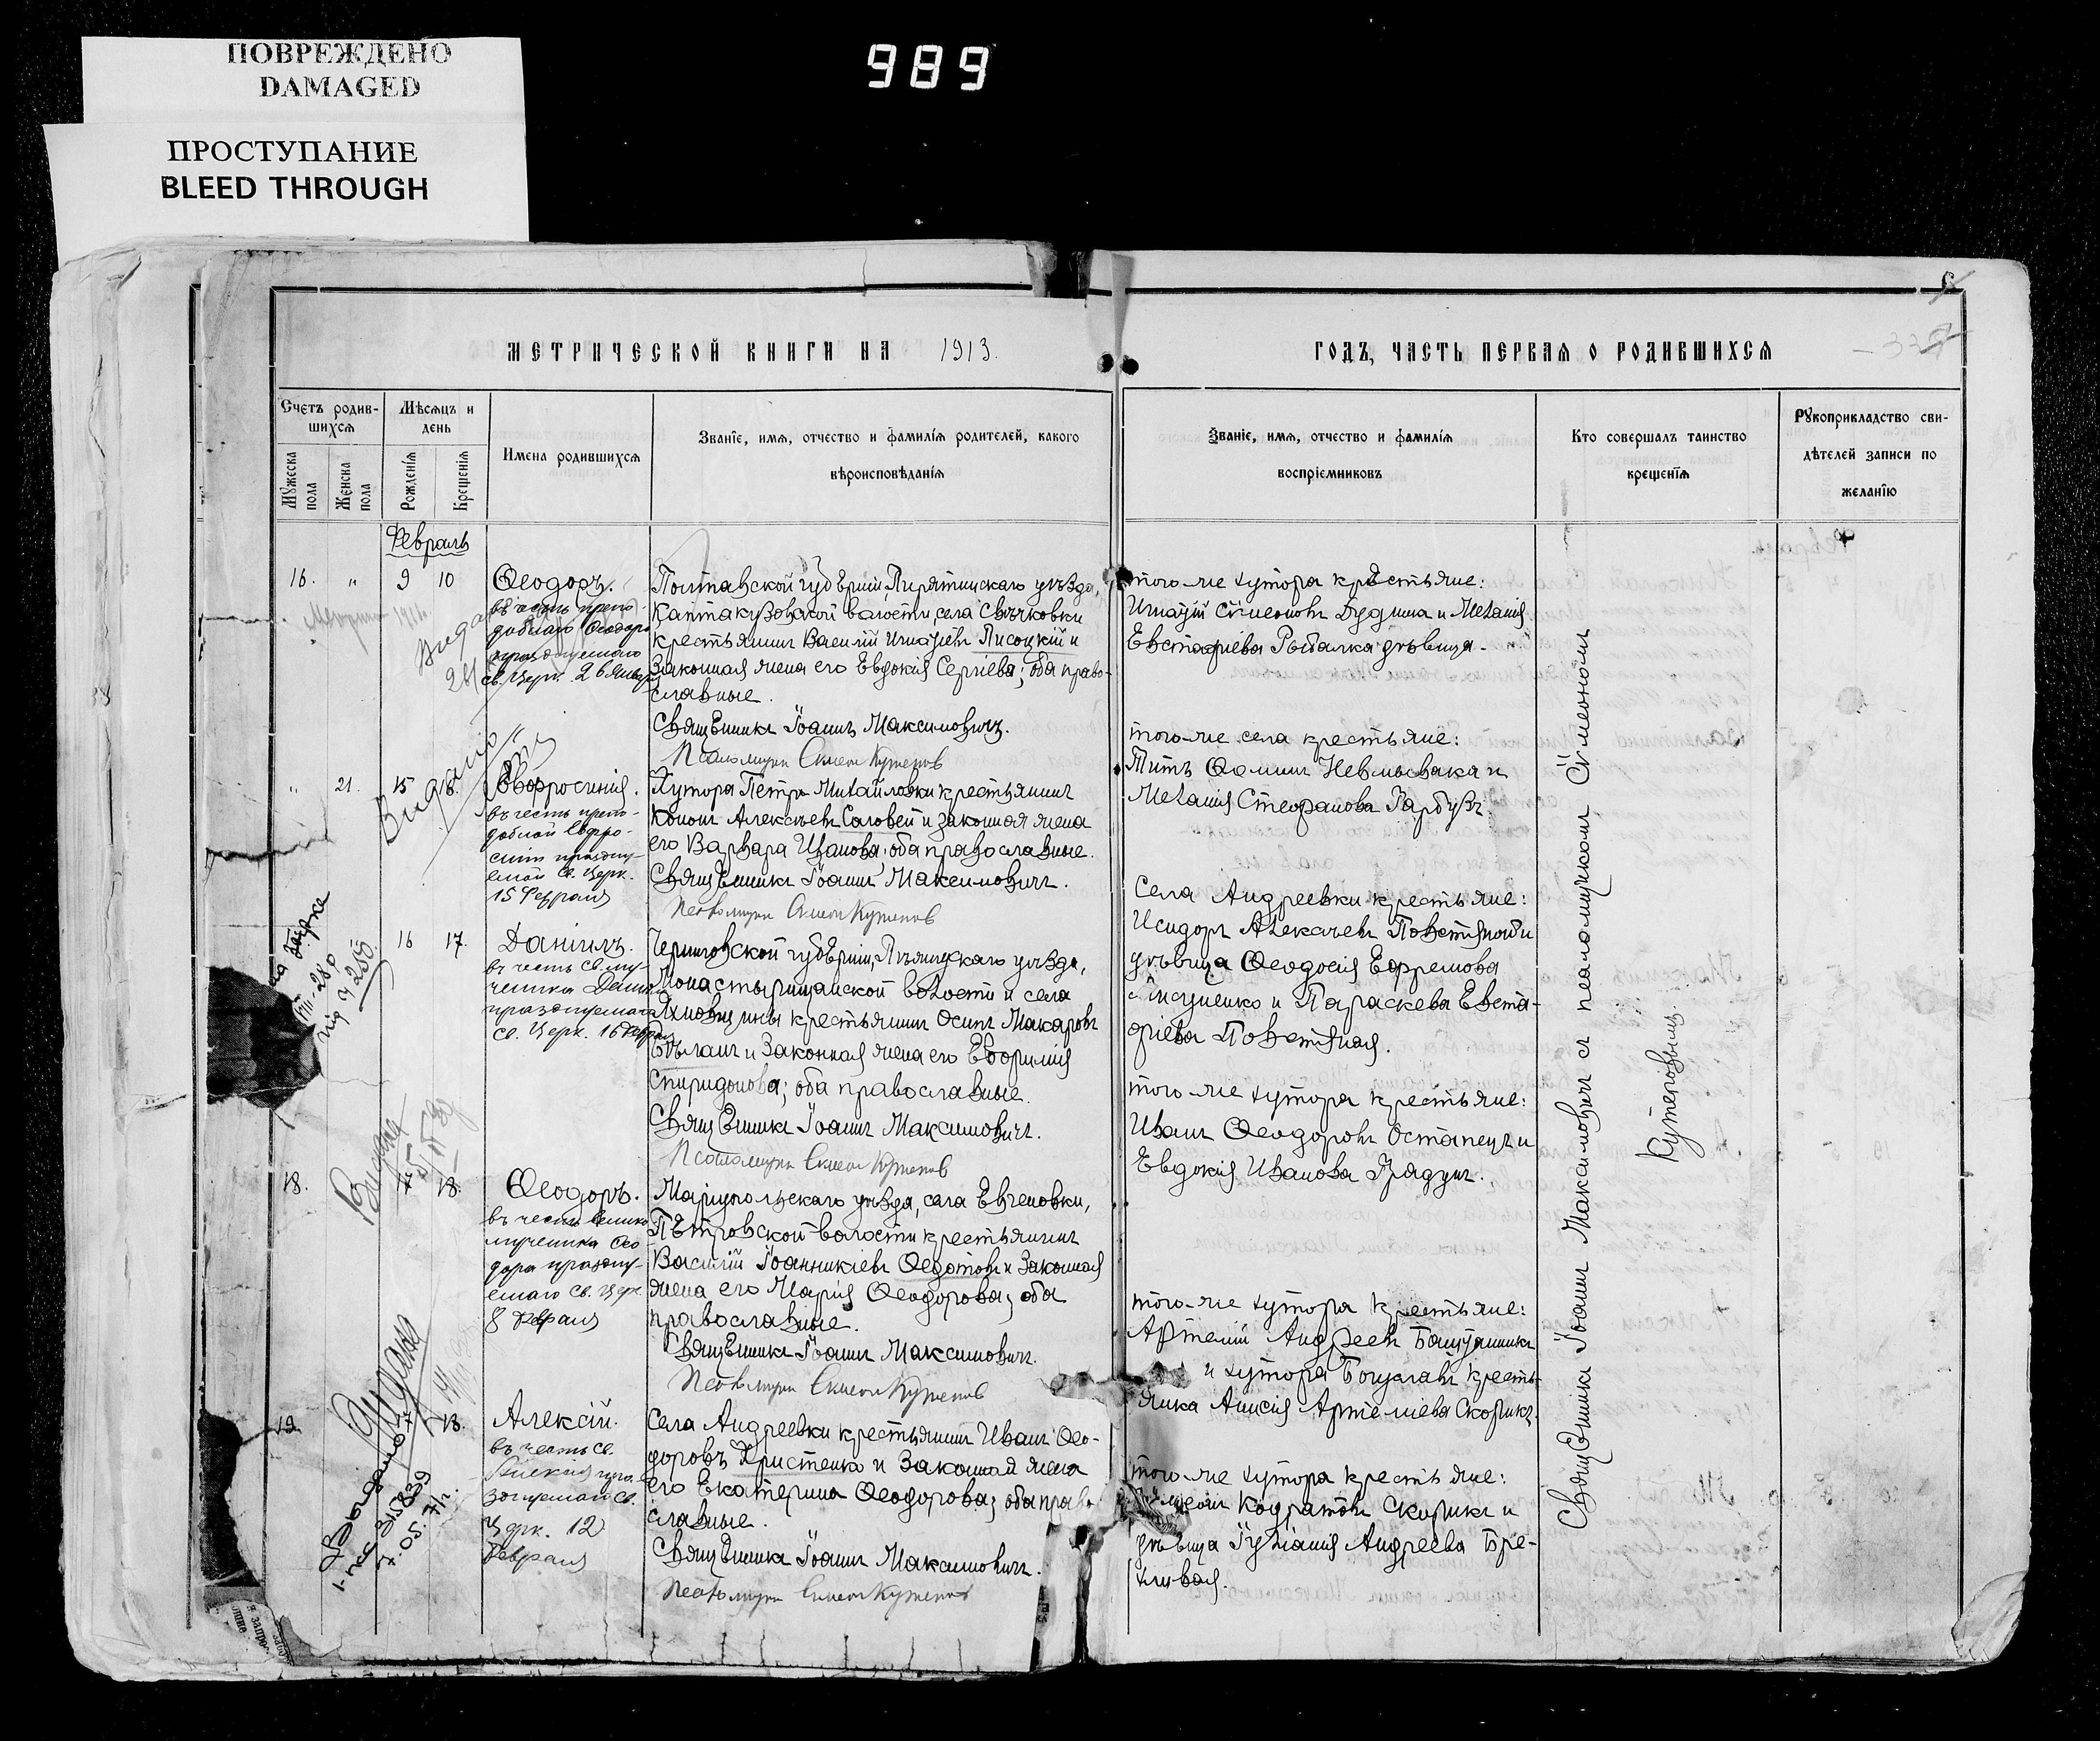 ПОВРЕЖДЕНО
DAMAGED
ПРОСТУПАНИЕ
BLEED THROUGH
989
МЕТРИЧЕСКОЙ КНИГИ НА 1913.
ГОДЪ, ЧАСТЬ ПЕРВАЯ О РОДИВШИХСЯ
Счетъ родив-
шихся
Мѣсяцъ и
день
Мужеска
пола
Женска
пола
Рожденія
Крещенія
Имена родившихся
Званіе, имя, отчество и фамилія родителей, какого
вѣроисповѣданія
Званіе, имя, отчество и фамилія
воспріемниковъ
Кто совершалъ таинство
крещенія
Рукоприкладство сви-
дѣтелей записи по
желанію
Февраль
16. " 9 10
Ѳеодоръ.
въ честь препо-
добнаго Ѳеодора
празднуемаго
св. Церк. 26 Январ
Полтавской губерніи, Пирятинскаго уѣзда,
Кантакузовской волости, села Свѣчковки
крестьянинъ Василій Игнатіевъ Лисоцкій и
законная жена его Евдокія Сергіева; оба право-
славные.
Священникъ Іоаннъ Максимовичъ.
Псаломщикъ Симеон Кутепов
того-же хутора крестьяне:
Игнатій Симеоновъ Дудника и Меланія
Евстафіева Рыбалка дѣвица.
" 21. 15
Евфросинія.
въ честь препо-
добной Евфро-
синіи праздну-
емой св. Церк.
15 Февраля
Хутора Петро-Михайловки крестьянинъ
Кононъ Алексѣевъ Соловей и законная жена
его Варвара Иванова; оба православные.
Священникъ Іоаннъ Максимовичъ.
Псаломщикъ Симеон Кутепов
того-же села крестьяне:
Титъ Ѳоминъ Невмывака и
Меланія Стефанова Гарбузъ.
16 17.
Даніилъ.
въ честь св. му-
ченика Даніила
празднуемаго
св. Церк. 16 Феврал
Черниговской губерніи, Нѣжинскаго уѣзда,
Монастырищанской волости и села
Яхновщины крестьянинъ Осипъ Макаровъ
Бѣланъ и законная жена его Евфимія
Спиридонова; оба православные.
Священникъ Іоаннъ Максимовичъ.
Псаломщикъ Симеон Кутепов
Села Андреевки крестьяне:
Исидоръ Алексѣевъ Повстяной и
дѣвица Ѳеодосія Ефремова
и Параскева Евста-
фіева Повстяная.
18. 18.
Ѳеодоръ.
въ честь велико-
мученика Ѳео-
дора праздну-
емаго св. Церк.
8 Февраля
Маріупольскаго уѣзда, села Евгеновки,
Петровской волости крестьянинъ
Василій Іоанникіевъ Ѳедотовъ и законная
жена его Марія Ѳеодорова; оба
православные.
Священникъ Іоаннъ Максимовичъ.
Псаломщикъ Симеон Кутепов
того-же хутора крестьяне:
Иванъ Ѳеодоровъ Остапецъ и
Евдокія Иванова
19. 18.
Алексій.
въ честь св.
Алексія пра-
зднуемаго св.
Церк. 12
Февраля
Села Андреевки крестьянинъ Иванъ Ѳео-
доровъ Христенко и законная жена
его Екатерина Ѳеодорова; оба право
славные.
Священникъ Іоаннъ Максимовичъ.
Псаломщикъ Симеон Кутепов
того-же хутора крестьяне:
Артемій Андреевъ Баштанникъ
и хутора Богуславъ кресть-
янка Анисія Артеміева Скорикъ.
того-же хутора крестьяне:
Кодратовъ Скорикъ и
дѣвица Іуліанія Андреева Бре-
хливая.
Священникъ Іоаннъ Максимовичъ съ псаломщикомъ Симеономъ
Кутеповымъ.
Видано
Видано
Выдано
315839